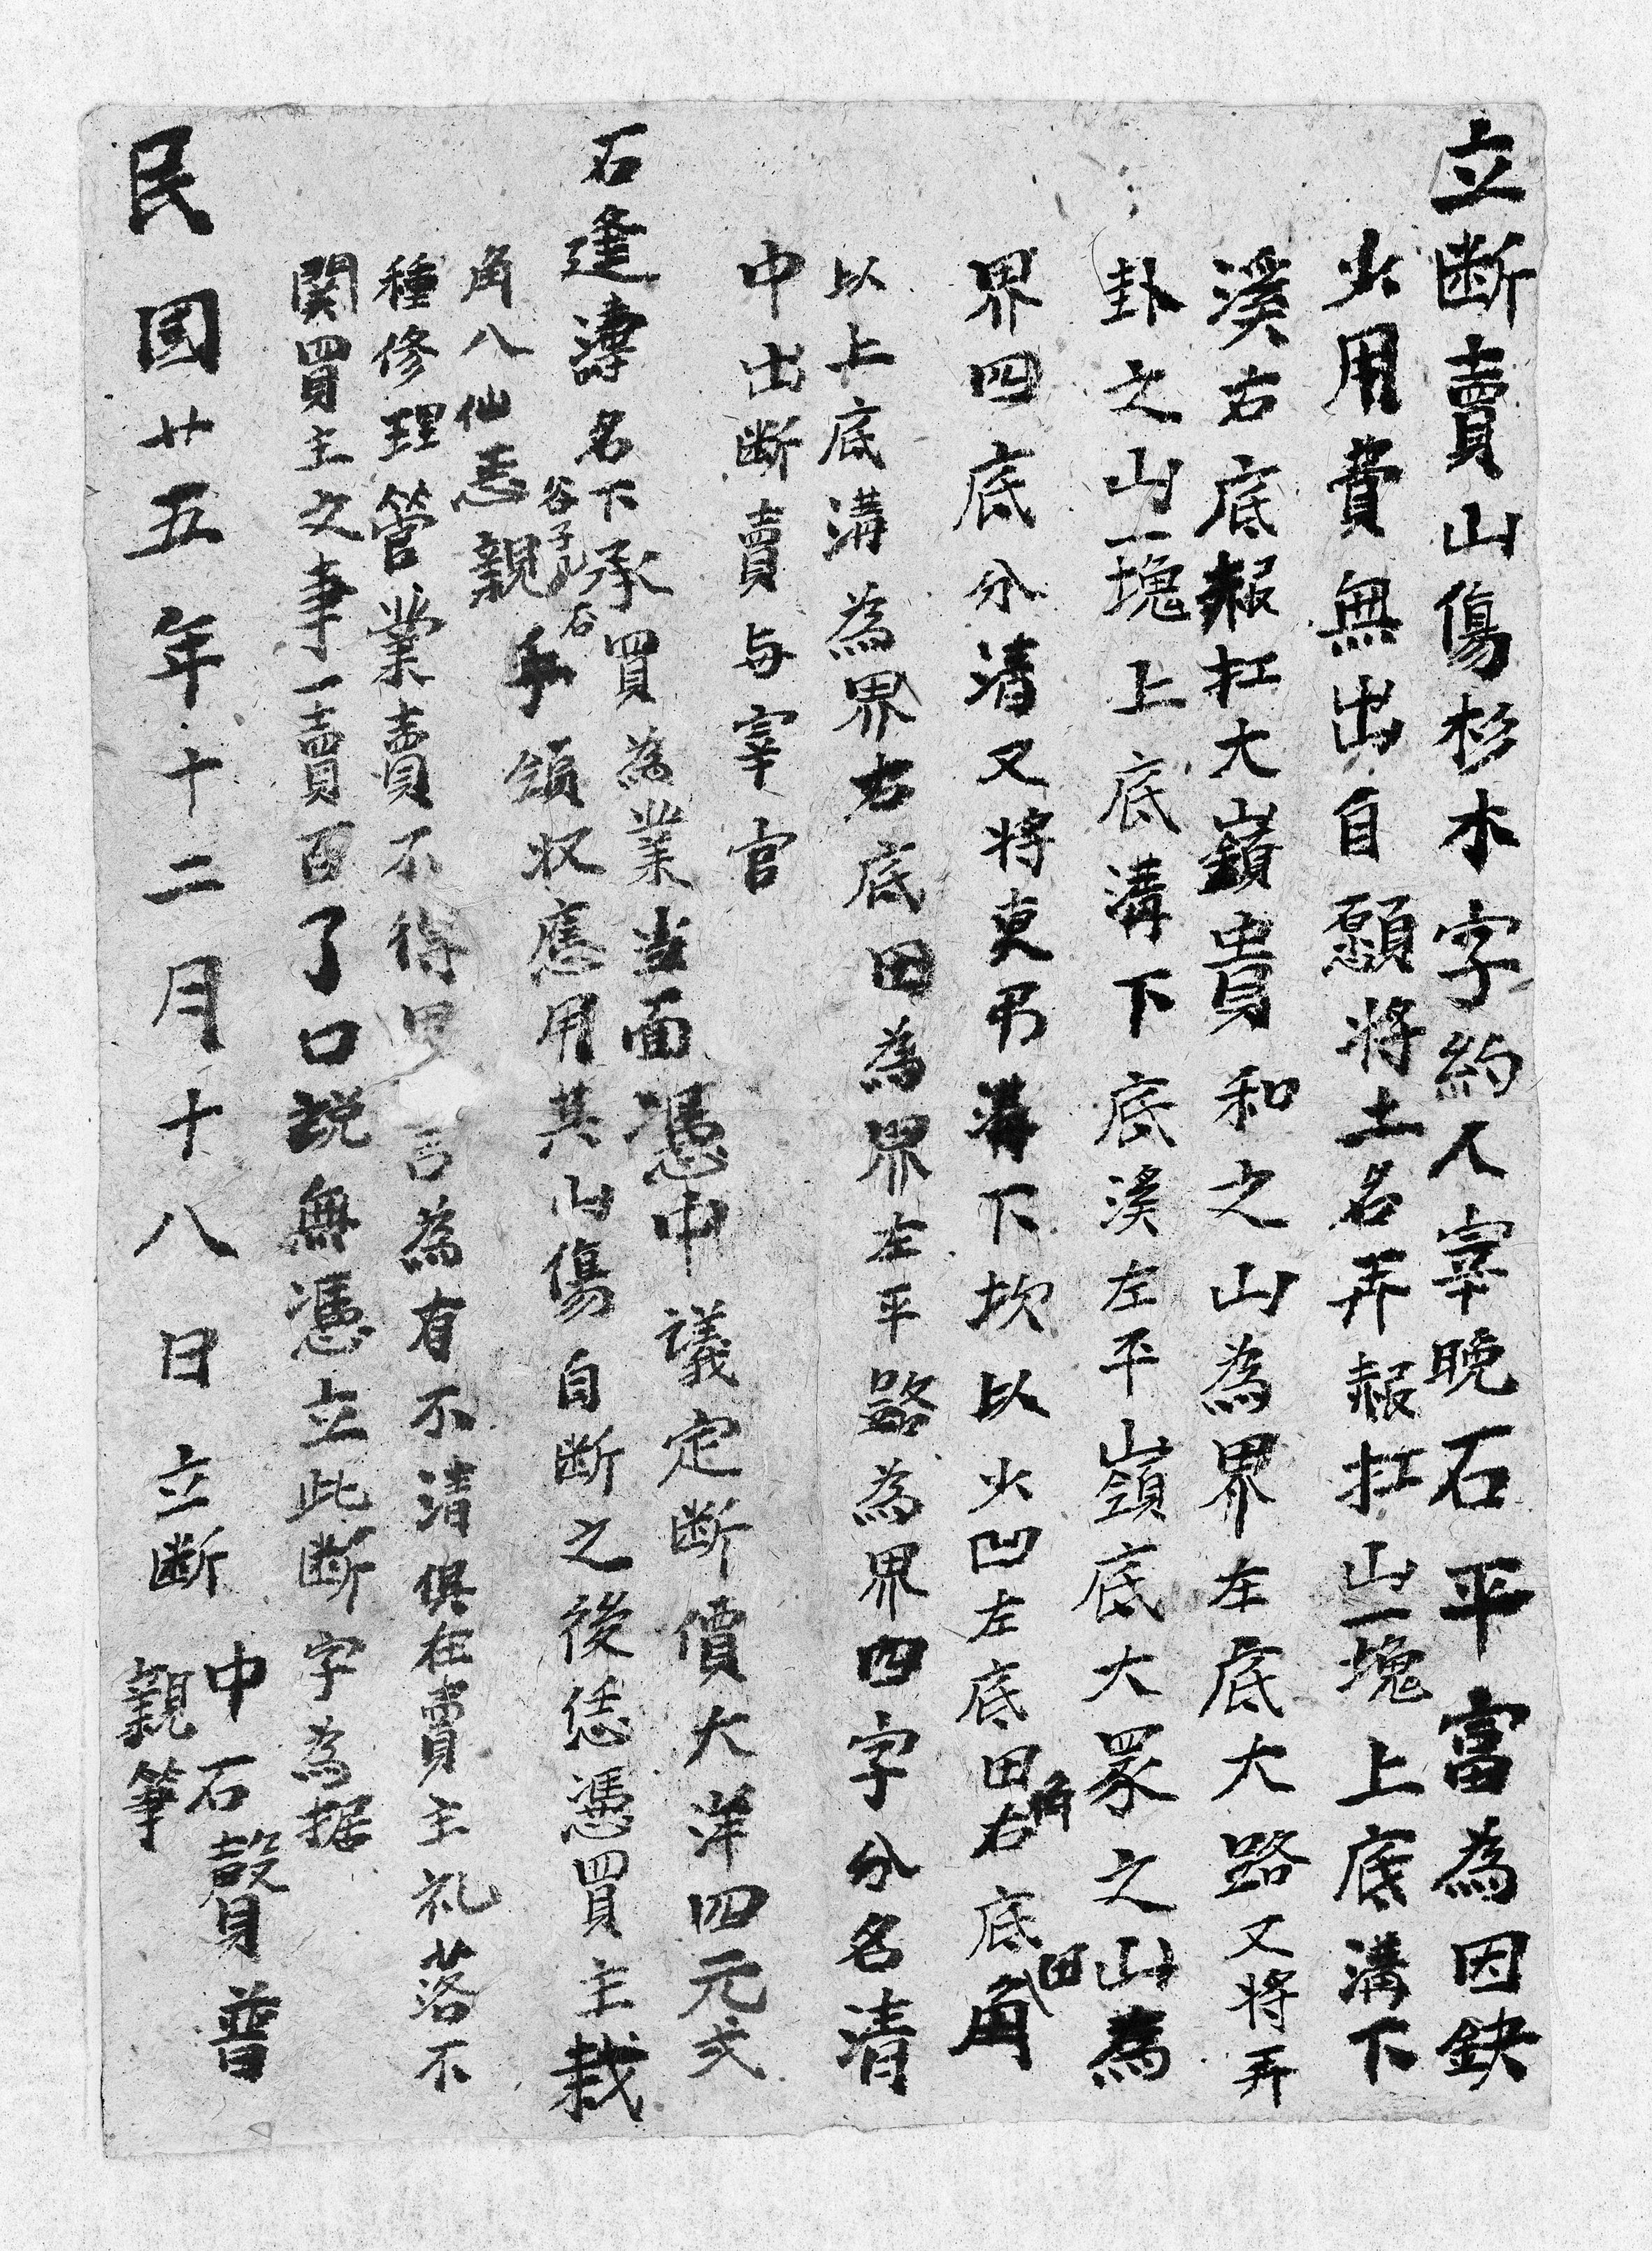 立断賣山傷杉木字約人宰晚石平富為因缺
少用費無出自愿將土名弄報扛山一塊上底溝下
溪右底報扛大嶺貴和之山為界左底大路又將弄
卦之山一塊上底溝下底溪左平嶺底大眾之山為
界四底分清又將吏弔溝下坎以火凹左底田角右底田角
以上底溝為界右底田為界左平路為界四字分名清
中出断賣与宰官
石逢濤名下承買為業当面憑中議定断價大洋四元弍
谷子 石
角八仙恚親手領収應用其山傷自断之後恁憑買主栽
種修理管業賣不得 言為有不清俱在賣主礼落不
関買主之事一賣百了口説無憑立此断字為据
中石聲普
親筆
民國廿五年十二月十八日立断